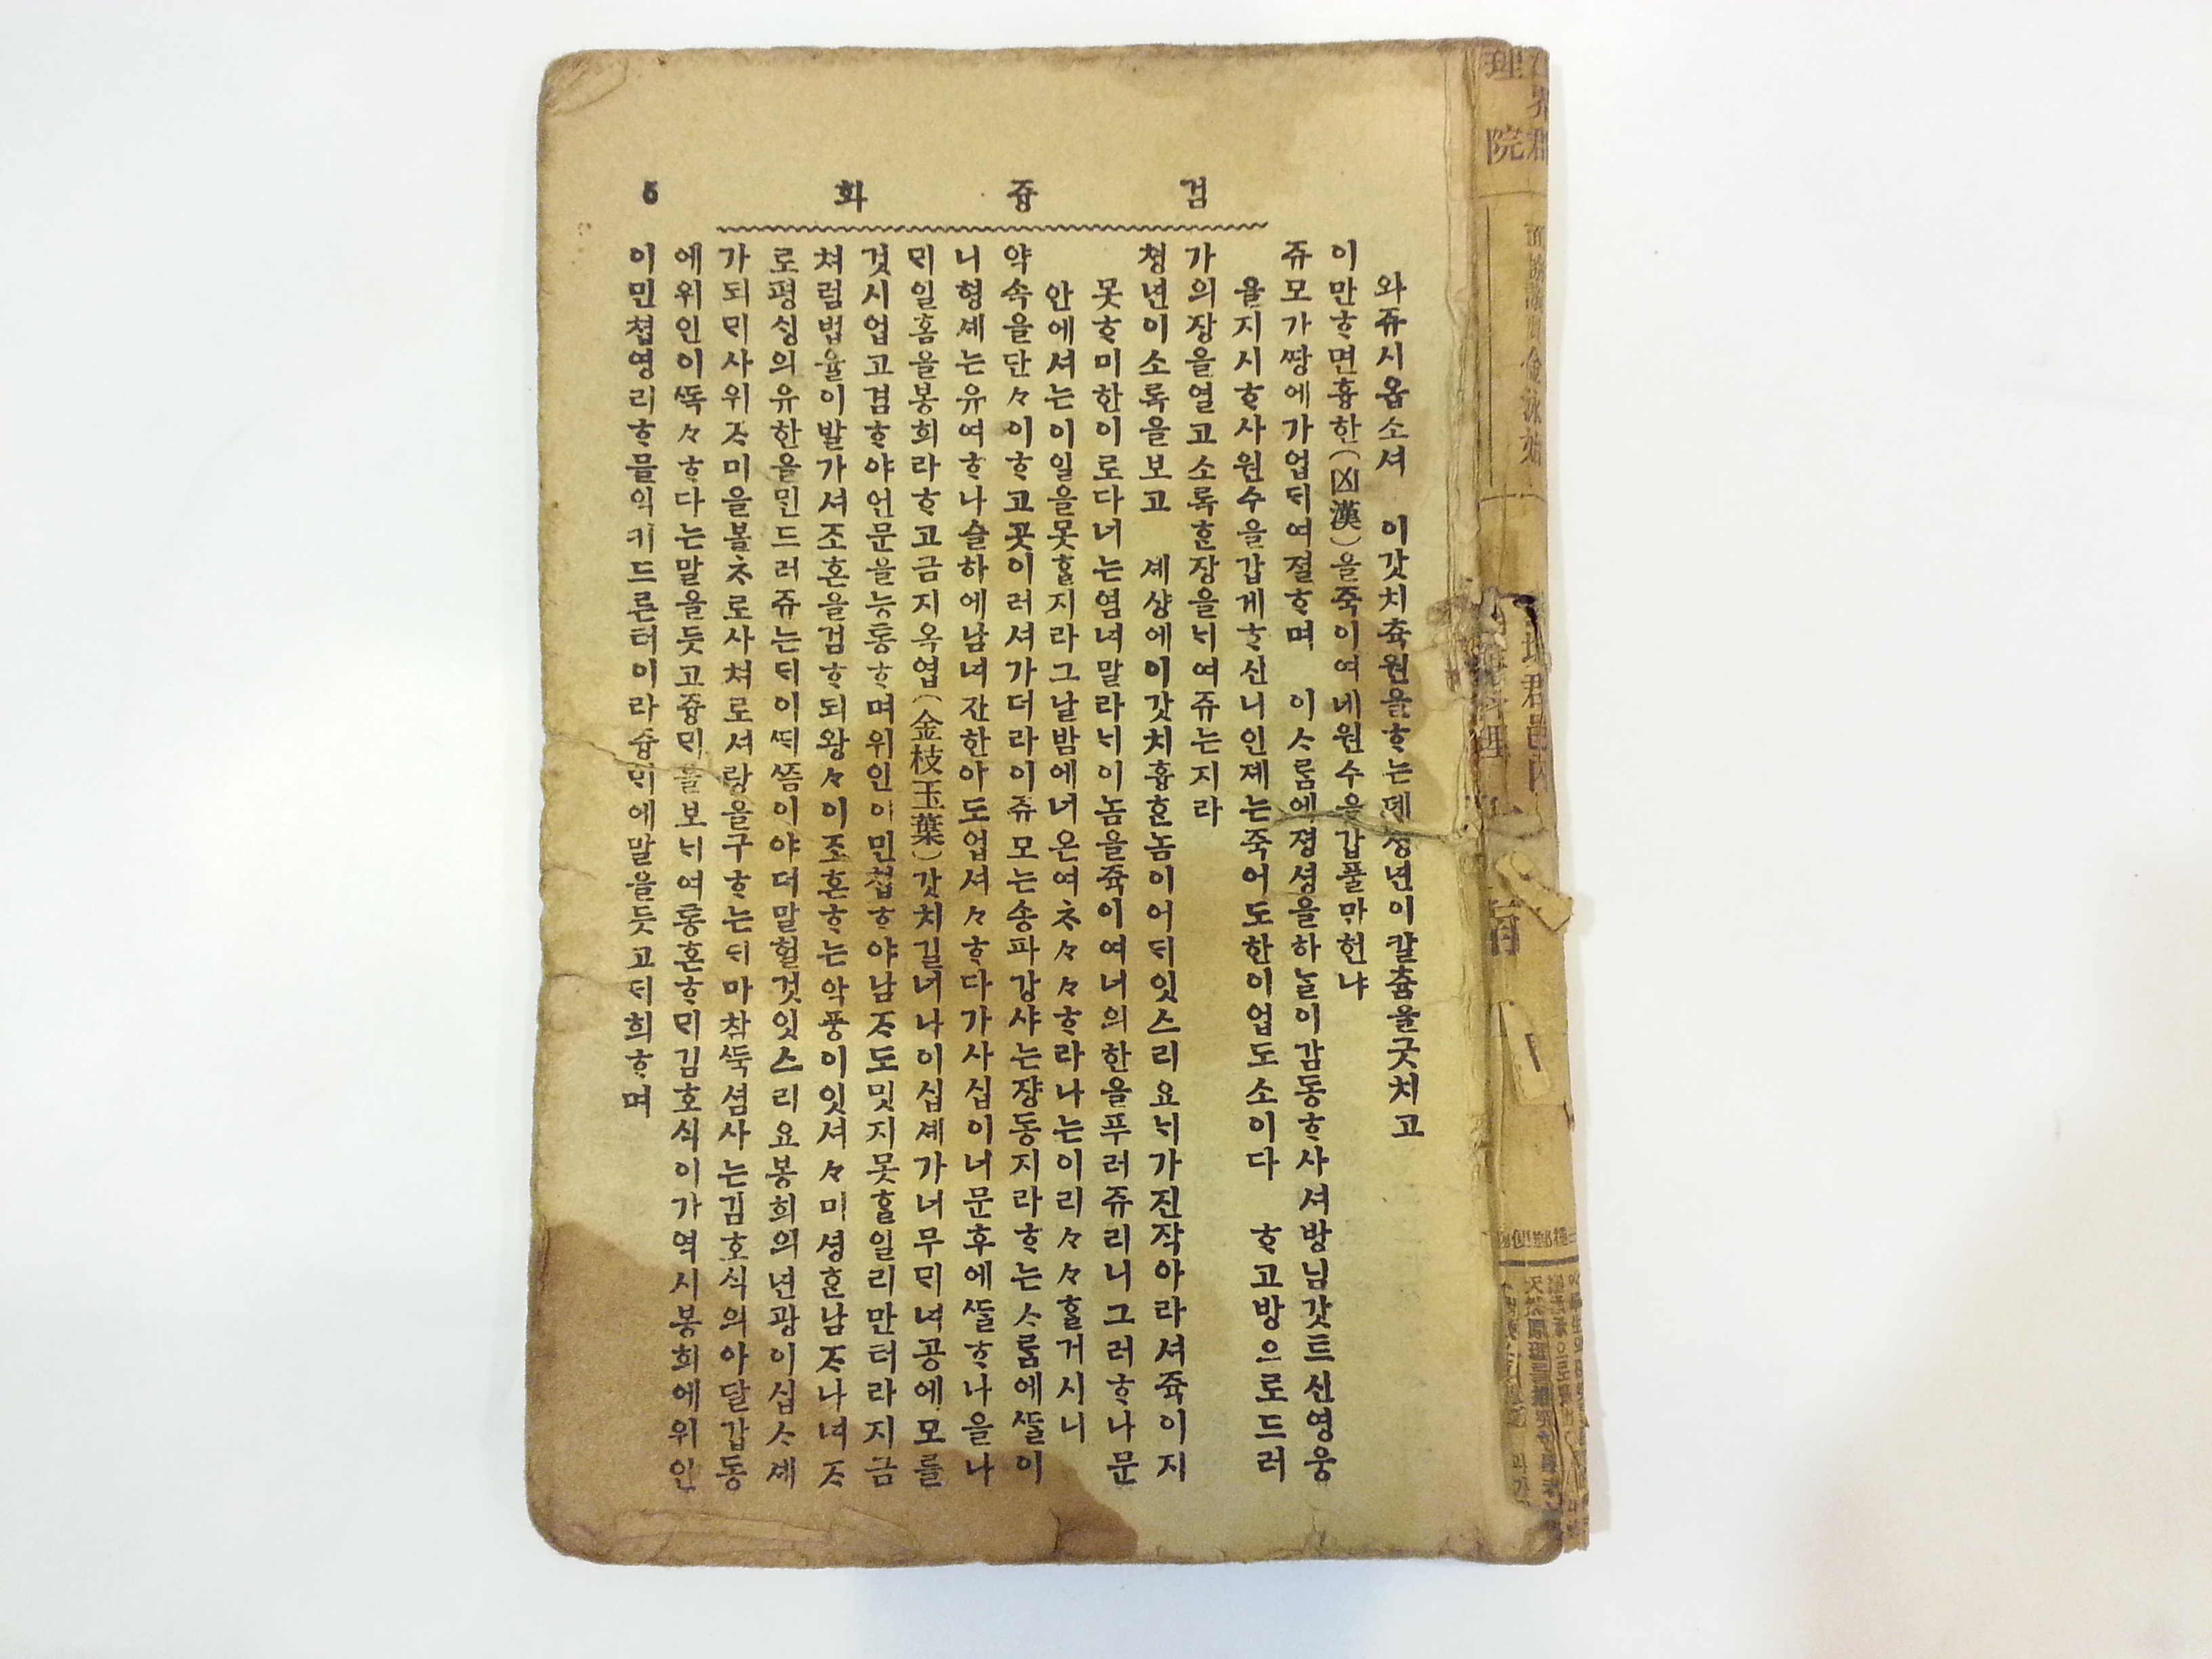 검 즁 화
6
와쥬시옵소셔 이갓치츅원을ᄒᆞ는데쳥년이칼츔을긋치고
이만ᄒᆞ면흉한(凶漢)을죽이여네원수을갑풀만헌냐
쥬모가ᄯᅡᆼ에가업ᄃᆡ여졀ᄒᆞ며 이ᄉᆞᄅᆞᆷ에졍셩을하ᄂᆞᆯ이감동ᄒᆞ사셔방님갓트신영웅
을지시ᄒᆞ사원수을갑게ᄒᆞ신니인졔는죽어도한이업도소이다 ᄒᆞ고방으로드러
가의장을열고소록ᄒᆞᆫ장을ᄂᆡ여쥬는지라
쳥년이소록을보고 셰샹에이갓치흉ᄒᆞᆫ놈이어ᄃᆡ잇스리요ᄂᆡ가진작아라셔쥭이지
못ᄒᆞ미한이로다너는염녀말라ᄂᆡ이놈을쥭이여너의한을푸러쥬리니그러ᄒᆞ나문
안에셔는이일을못ᄒᆞᆯ지라그날밤에너온여ᄎᆞ々々ᄒᆞ라나는이리々々ᄒᆞᆯ거시니
약속을단々이ᄒᆞ고곳이러셔가더라이쥬모는송파강샤는쟝동지라ᄒᆞ는ᄉᆞᄅᆞᆷ에ᄯᆞᆯ이
니형셰는유여ᄒᆞ나슬하에남녀잔한아도업셔々ᄒᆞ다가사십이너문후에ᄯᆞᆯᄒᆞ나을나
ᄆᆡ일홈을봉희라ᄒᆞ고금지옥엽(金枝玉葉)갓치길너나이십셰가너무ᄆᆡ녀공에모를
것시업고겸ᄒᆞ야언문을능통ᄒᆞ며위인이민쳡ᄒᆞ야남ᄌᆞ도밋지못ᄒᆞᆯ일리만터라지금
쳐럼법율이발가셔조혼을검ᄒᆞ되왕々이조혼ᄒᆞ는악풍이잇셔々미셩ᄒᆞᆫ남ᄌᆞ나녀ᄌᆞ
로평ᄉᆡᆼ의유한을ᄆᆡᆫ드러쥬는ᄃᆡ이ᄯᆡᄶᅳᆷ이야더말헐것잇스리요봉희의년광이십ᄉᆞ셰
가되ᄆᆡ사위ᄌᆞ미을볼ᄎᆞ로사쳐로셔랑을구ᄒᆞ는ᄃᆡ마참ᄯᅮᆨ셤사는김호식의아달갑동
에위인이ᄯᅩᆨ々ᄒᆞ다는말을듯고즁ᄆᆡ를보ᄂᆡ여통혼ᄒᆞᄆᆡ김호식이가역시봉희에위인
이민쳡영리ᄒᆞ믈익키드른터이라즁ᄆᆡ에말을듯고ᄃᆡ희ᄒᆞ며
理院
金泳
郡邑內